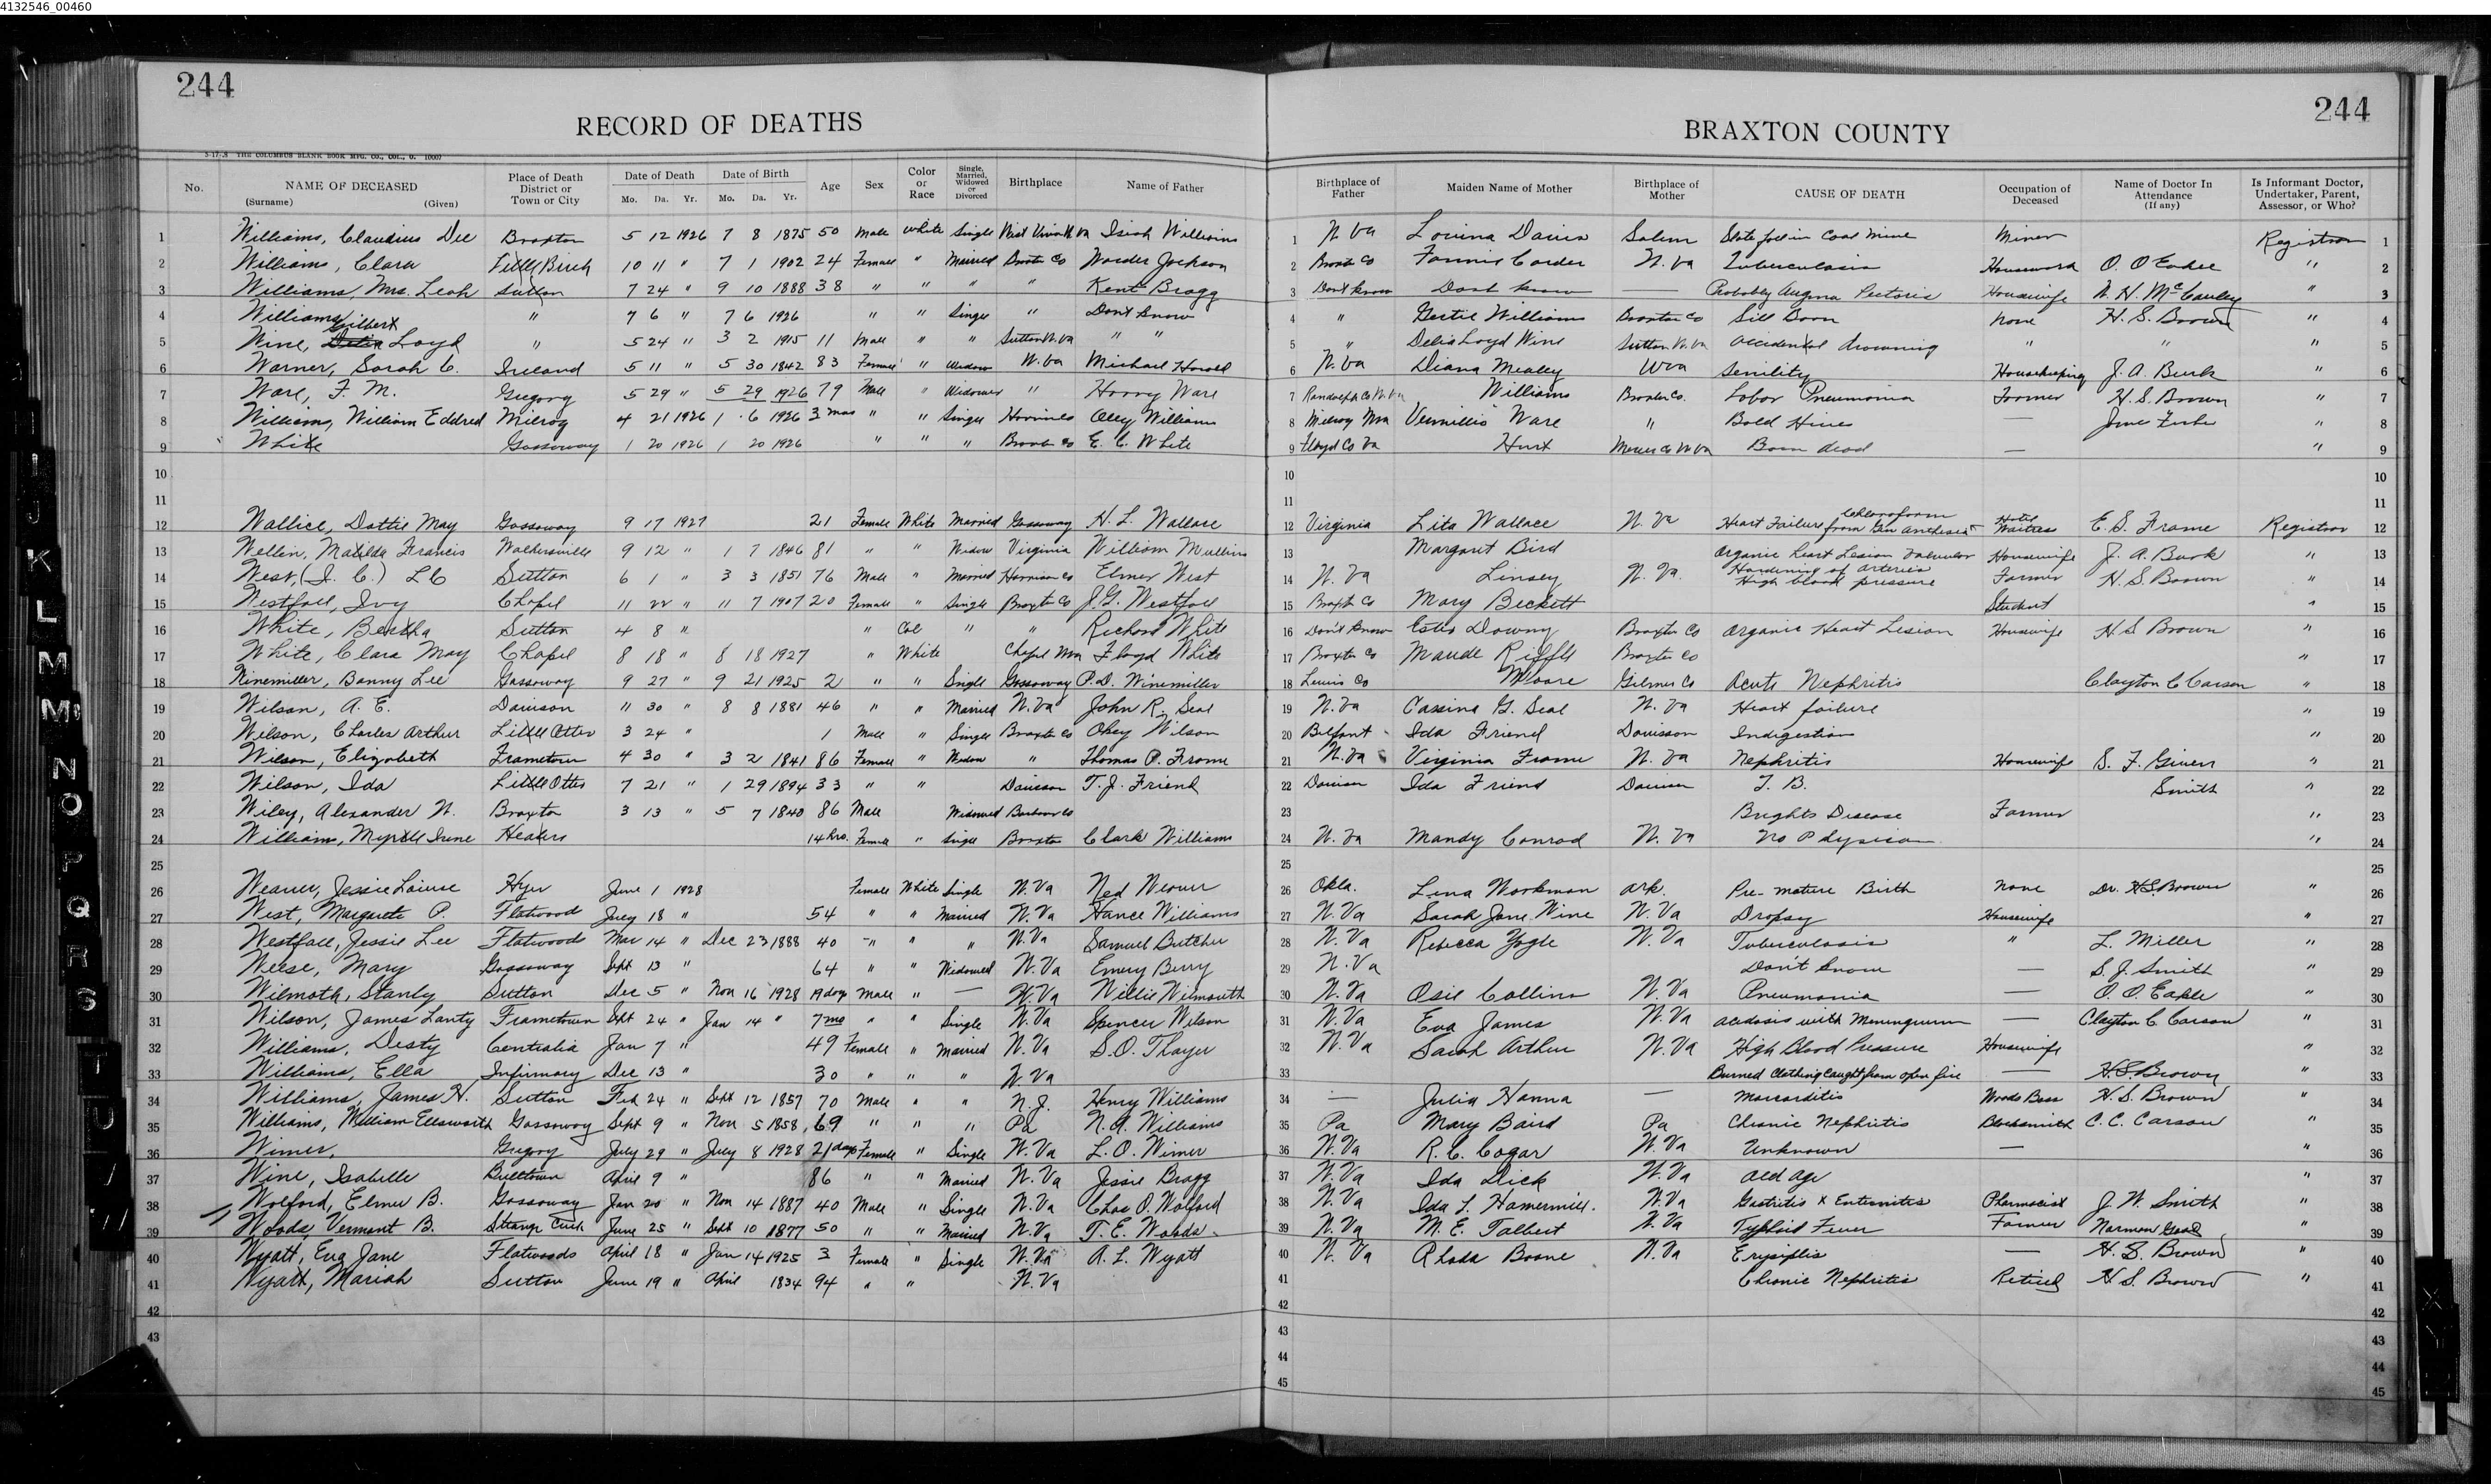 4132546_00460
244
RECORD OF DEATHS
244
BRAXTON COUNTY
5-17-8 THE COLUMBUS BLANK BOOK MFG. CO., COL., O. 10007
No. NAME OF DECEASED (Surname) (Given) Place of Death District or Town or City Date of Death Mo. Da. Yr. Date of Birth Mo. Da. Yr. Age Sex Color or Race Single, Married, Widowed or Divorced Birthplace Name of Father Birthplace of Father Maiden Name of Mother Birthplace of Mother CAUSE OF DEATH Occupation of Deceased Name of Doctor In Attendance (If any) Is Informant Doctor, Undertaker, Parent, Assessor, or Who?
1 Williams, Claudius Dee Braxton 5 12 1926 7 8 1875 50 Male White Single West Union W Va Isiah Williams 1 W Va Lovina Davis Salem Slate fall in Coal Mine Miner Registrar 1
2 Williams, Clara Little Birch 10 11 " 7 1 1902 24 Female " Married Braxton Co Worder Jackson 2 Braxt Co Fannie Carder W. Va Tuberculosis Housework O. O Eakle " 2
3 Williams, Mrs. Leah Sutton 7 24 " 9 10 1888 38 " " " " Kent Bragg 3 Dont know Dont know — Probably Angina Pectoris Housewife W. H. McCauley " 3
4 Williams " 7 6 " 7 6 1926 " " Single " Dont know 4 " Gertie Williams Braxton Co Still Born None H. S. Brown " 4
5 Wine, Gilbert Loyd " 5 24 " 3 2 1915 11 Male " " Sutton W. Va " " 5 " Delia Loyd Wine Sutton W. Va Accidental drowning " " " 5
6 Warner, Sarah C. Ireland 5 11 " 5 30 1842 83 Female " Widow W. Va Michael Harold 6 W. Va Diana Mealey W Va Senility Housekeeping J. A. Burk " 6
7 Ware, F. M. Gregory 5 29 " 5 29 1926 79 Male " Widower " Harry Ware 7 Randolph Co W. Va Williams Braxton Co. Lobar Pneumonia Farmer H. S. Brown " 7
8 Williams, William Eddred Milroy 4 21 1926 1 6 1926 3 mos " " Single Oley Williams 8 Milroy Ware " Bold Hives — " 8
9 White Gassaway 1 20 1926 1 20 1926 " " " Braxton Co E. C. White 9 Floyd Co Va Hurt Mercer Co W Va Born dead — " 9
10 10 10
11 11 11
12 Wallice, Dottie May Gassaway 9 17 1927 21 Female White Married Gassaway H. L. Wallace 12 Virginia Lita Wallace W. Va Heart Failure from chloroform Hotel Waitress E. S. Frame Registrar 12
13 Wellen, Matilda Francis Walkersville 9 12 " 1 7 1846 81 " " Widow Virginia William Mullins 13 Margaret Bird Organic heart Lesion Valvular Housewife J. A. Burk " 13
14 West, (I. C.) L C Sutton 6 1 " 3 3 1851 76 Male " Married Harrison Co Elmer West 14 W. Va Linsey W. Va. Hardening of arteries High blood pressure Farmer H. S. Brown " 14
15 Westfall, Ivy Chapel 11 22 " 11 7 1907 20 Female " Single Braxton Co J. G. Westfall 15 Braxt Co Mary Beckett Student " 15
16 White, Bertha Sutton 4 8 " " Col " " Richard White 16 Don't know Downy Braxton Co Organic Heart Lesion Housewife H. S Brown " 16
17 White, Clara May Chapel 8 18 " 8 18 1927 " White Chapel Floyd White 17 Braxton Co Maude Riffle Braxton Co " 17
18 Winemiller, Bonny Lee Gassaway 9 27 " 9 21 1925 2 " " Single Gassaway P. D. Winemiller 18 Lewis Co Moore Gilmer Co Acute Nephritis Clayton C Carson " 18
19 Wilson, A. E. Davison 11 30 " 8 8 1881 46 " " Married W. Va John R. Seal 19 W. Va Cassina G. Seal W. Va Heart failure " 19
20 Wilson, Charles Arthur Little Otter 3 24 " 1 Male " Single Braxton Co Okey Wilson 20 Belfont Ida Friend Davisson Indigestion " 20
21 Wilson, Elizabeth Frametown 4 30 " 3 2 1841 86 Female " Widow " Thomas P. Frame 21 W. Va Virginia Frame W. Va Nephritis Housewife S. F. Given " 21
22 Wilson, Ida Little Otter 7 21 " 1 29 1894 33 " " Davison T. J. Friend 22 Davison Ida Friend Davison T. B. Smith " 22
23 Wiley, Alexander W. Braxton 3 13 " 5 7 1840 86 Male Widowed Barbour Co 23 Brights Disease Farmer " 23
24 William, Myrtle Irene Heaters 14 hrs. Female " Single Braxton Clark Williams 24 W. Va Mandy Conrad W. Va No Physician " 24
25 25 25
26 Weaver, Jessie Louise Hyer June 1 1928 Female White Single W. Va Ned Weaver 26 Okla. Lena Workman Ark. Pre-mature Birth None Dr. H.S. Brown " 26
27 West, Margurete P. Flatwood July 18 " 54 " " Married W. Va Hance Williams 27 W. Va Sarah Jane Wine W. Va Dropsy Housewife " 27
28 Westfall, Jessie Lee Flatwoods Mar 14 " Dec 23 1888 40 " " " W. Va Samuel Butcher 28 W. Va Rebecca Yogle W. Va Tuberculosis " L. Miller " 28
29 Weese, Mary Gassaway Sept 13 " 64 " " Widowed W. Va Emery Berry 29 W. Va Don't know — S. J. Smith " 29
30 Wilmoth, Stanly Sutton Dec 5 " Nov 16 1928 19 days Male " — W. Va Willie Wilmouth 30 W. Va Osie Collins W. Va Pneumonia — O. O. Eakle " 30
31 Wilson, James Lanty Frametown Sept 24 " Jan 14 " 7 mo " " Single W. Va Spencer Wilson 31 W. Va Eva James W. Va Acidosis with — Clayton C Carson " 31
32 Williams, Desty Centralia Jan 7 " 49 Female " Married W. Va S. O. Thayer 32 W. Va Sarah Arthur W. Va High Blood Pressure Housewife " 32
33 Williams, Ella Infirmary Dec 13 " 30 " " " W. Va 33 Burned Clothing caught from open fire — H. S Brown " 33
34 Williams, James H. Sutton Feb 24 " Sept 12 1857 70 Male " " N. J. Henry Williams 34 — Julia Hanna — Woods Boss H. S. Brown " 34
35 Williams, William Ellsworth Gassaway Sept 9 " Nov 5 1858 69 " " " Pa N. A. Williams 35 Pa Mary Baird Pa Chronic Nephritis Blacksmith C. C. Carson " 35
36 Wimer, Gregory July 29 " July 8 1928 21 days Female " Single W. Va L. O. Wimer 36 W. Va R. C. Cogar W. Va Unknown — " 36
37 Wine, Isabelle Bulltown April 9 " 86 " " Married W. Va Jessie Bragg 37 W. Va Ida Dick W. Va Old age " 37
38 Wolford, Elmer B. Gassaway Jan 20 " Nov 14 1887 40 Male " Single W. Va Chas O. Wolford 38 W. Va Ida L. Hamermill. W. Va Gastritis & Enternitis Pharmacist J. W. Smith " 38
39 Woods, Vermont B. Strange Creek June 25 " Sept 10 1877 50 " " Married W. Va T. E. Woods 39 W. Va M. E. Talbert W. Va Typhoid Fever Farmer Norman Goad " 39
40 Wyatt, Eva Jane Flatwoods April 18 " Jan 14 1925 3 Female " Single W. Va A. L. Wyatt 40 W. Va Rhoda Boone W. Va Erysiplis — H. S. Brown " 40
41 Wyatt, Mariah Sutton June 19 " April 1834 94 " " W. Va 41 Chronic Nephritis Retired H. S. Brown " 41
42 42 42
43 43 43
44 44
45 45
I J K L M Mc N O P Q R S T U
X Y